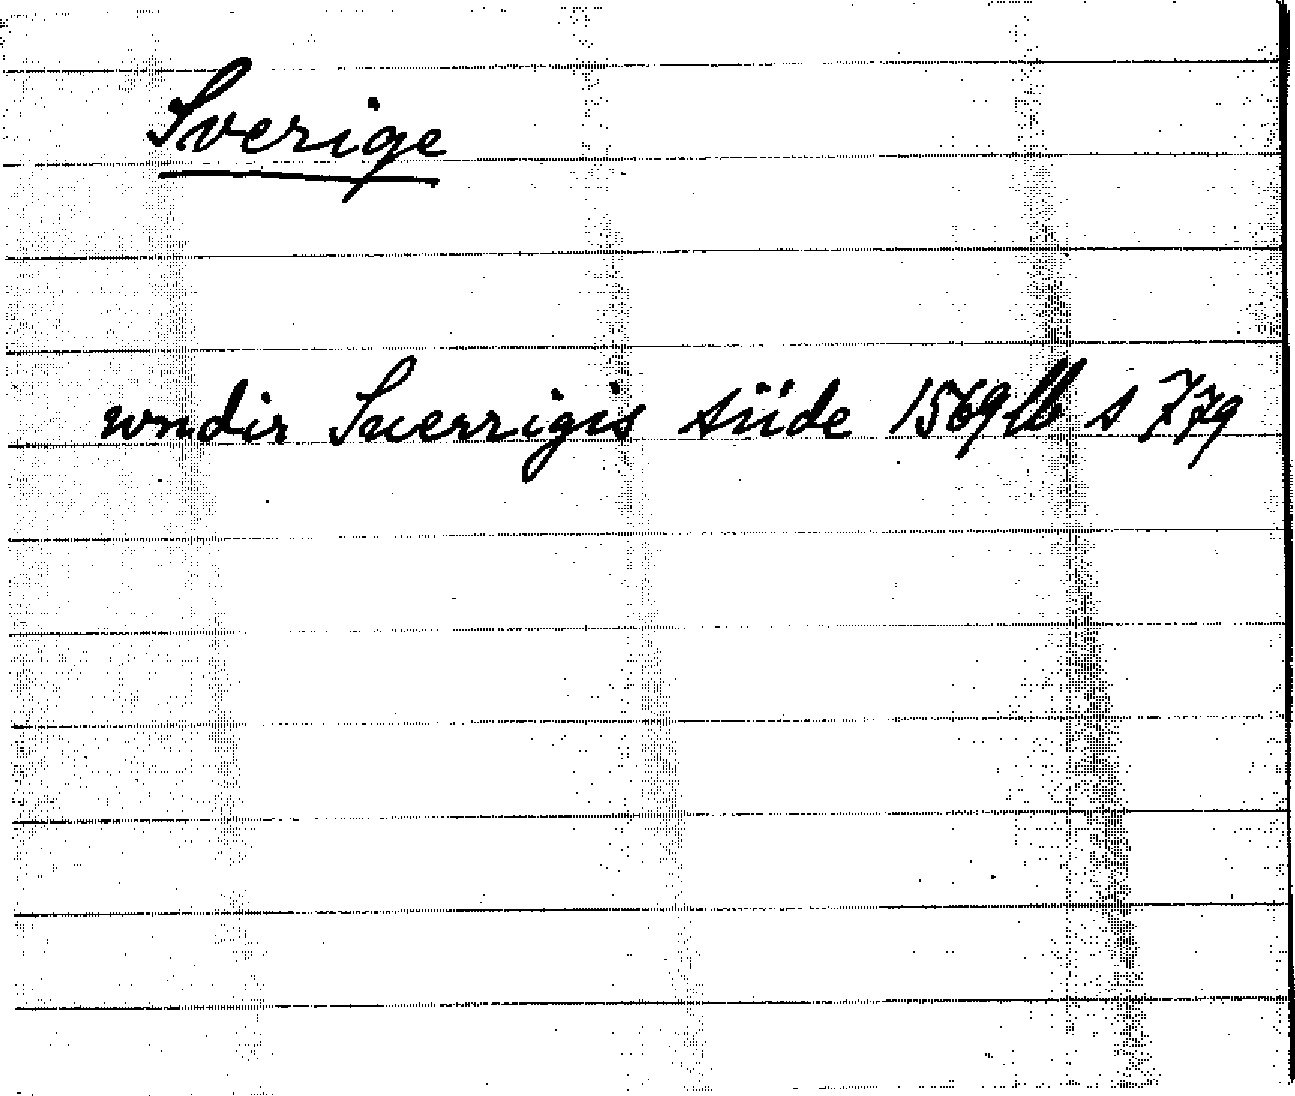 Sverige
wndir Suerrigis siide 1569 lb s 779